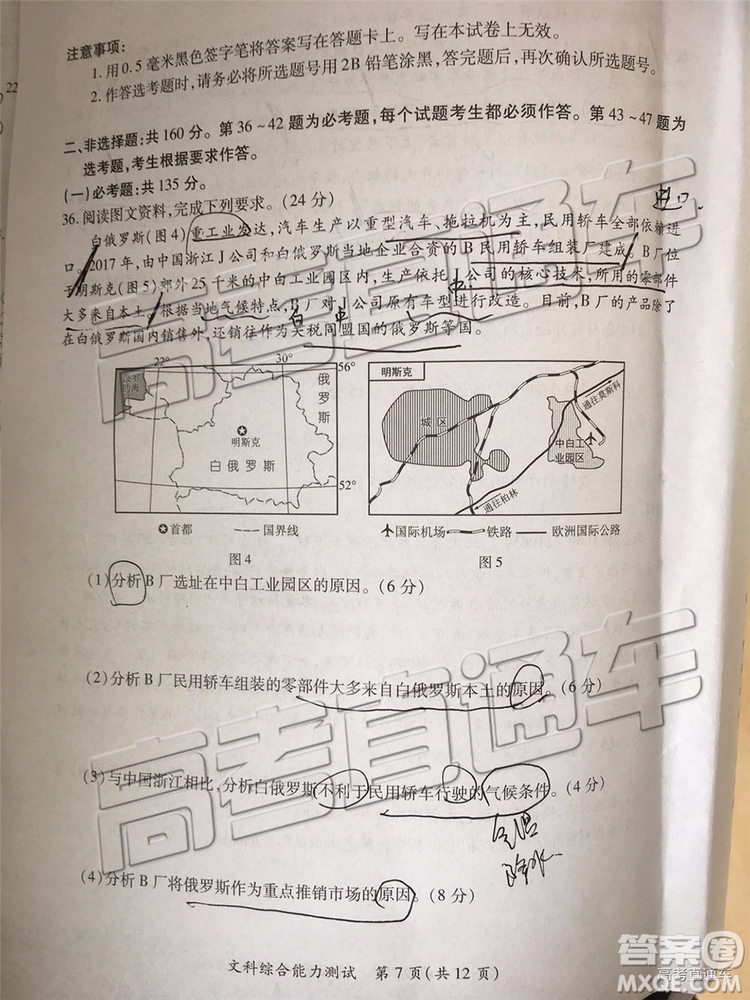 注意事项:
1. 用0.5毫米黑色签字笔将答案写在答题卡上。写在本试卷上无效。
2. 作答选考题时,请务必将所选题号用2B铅笔涂黑,答完题后,再次确认所选题号。
22
二、非选择题:共160分。第36~42题为必考题,每个试题考生都必须作答。第43~47题为
选考题,考生根据要求作答。
(一)必考题:共135分。
36. 阅读图文资料,完成下列要求。(24分)
白俄罗斯(图4)重工业发达,汽车生产以重型汽车、拖拉机为主,民用轿车全部依赖进
口。2017年,由中国浙江J公司和白俄罗斯当地企业合资的B民用轿车组装厂建成。B厂位
于明斯克(图5)郊外25千米的中白工业园区内,生产依托J公司的核心技术,所用的零部件
大多来自本土。根据当地气候特点,B厂对J公司原有车型进行改造。目前,B厂的产品除了
在白俄罗斯国内销售外,还销往作为关税同盟国的俄罗斯等国。
22° 30° 56°
俄罗斯
明斯克
白俄罗斯
52°
首都 国界线
图4
明斯克
城区
通往莫斯科
中白工
业园区
通往柏林
国际机场 铁路 欧洲国际公路
图5
(1)分析B厂选址在中白工业园区的原因。(6分)
(2)分析B厂民用轿车组装的零部件大多来自白俄罗斯本土的原因。(6分)
(3)与中国浙江相比,分析白俄罗斯不利于民用轿车行驶的气候条件。(4分)
气温
降水
(4)分析B厂将俄罗斯作为重点推销市场的原因。(8分)
文科综合能力测试 第7页(共12页)
高考直通车
高考直通车
答案圈
高考直通车
MXQE.COM